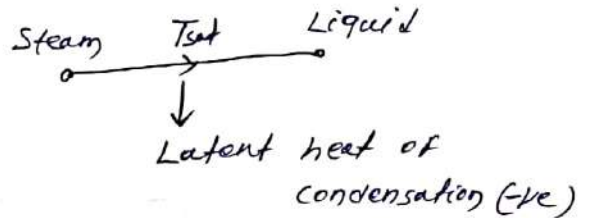 Steam Tsat Liquid
Latent heat of
condensation (-ve)